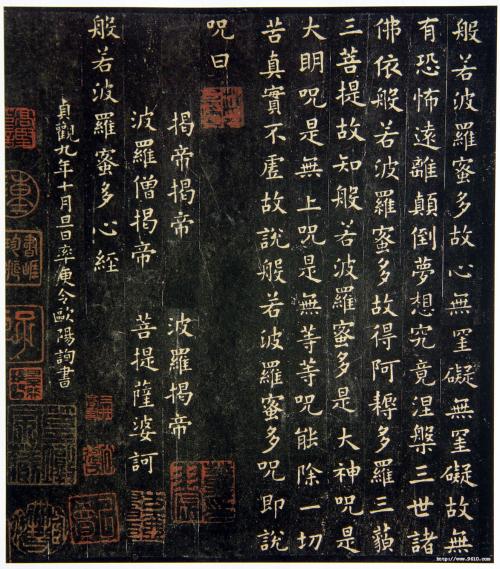 般若波羅蜜多故心無罣礙無罣礙故無
有恐怖遠離顛倒夢想究竟涅槃三世諸
佛依般若波羅蜜多故得阿耨多羅三藐
三菩提故知般若波羅蜜多是大神咒是
大明咒是無上咒是無等等咒能除一切
苦真實不虛故說般若波羅蜜多咒即說
咒曰
揭帝揭帝 波羅揭帝
波羅僧揭帝 菩提薩婆訶
般若波羅蜜多心經
貞觀九年十月旦日率更令歐陽詢書
http://www.9610.com